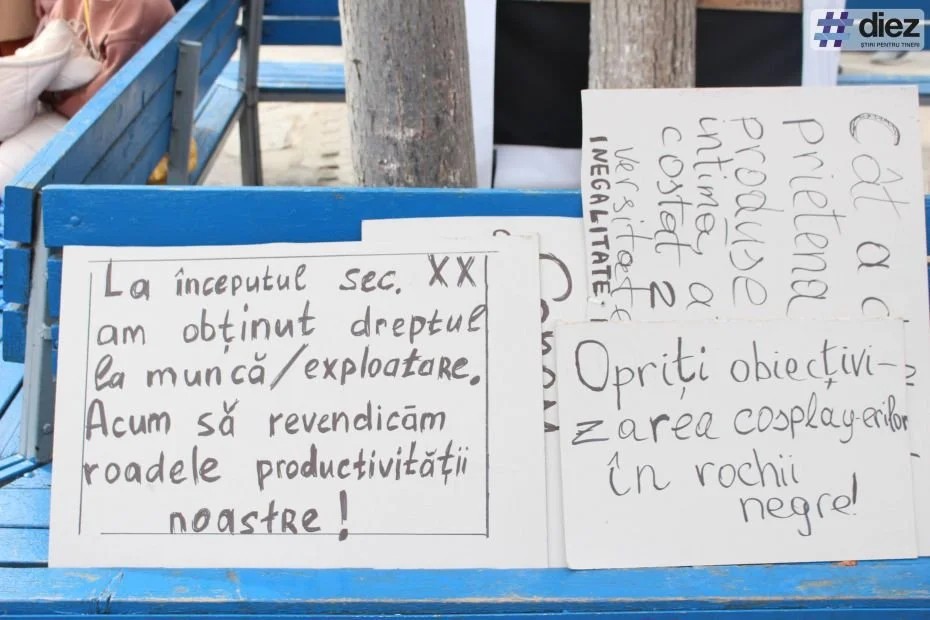 #diez
ȘTIRI PENTRU TINERI
La începutul sec. XX
am obținut dreptul
la muncă/exploatare.
Acum să revendicăm
roadele productivității
noastre!
Cât a c
prietena
produse
intimă, a
costat 2
versitate
INEGALITATE.
Opriți obiecțivi-
zarea cosplay-erilor
în rochii
negre!